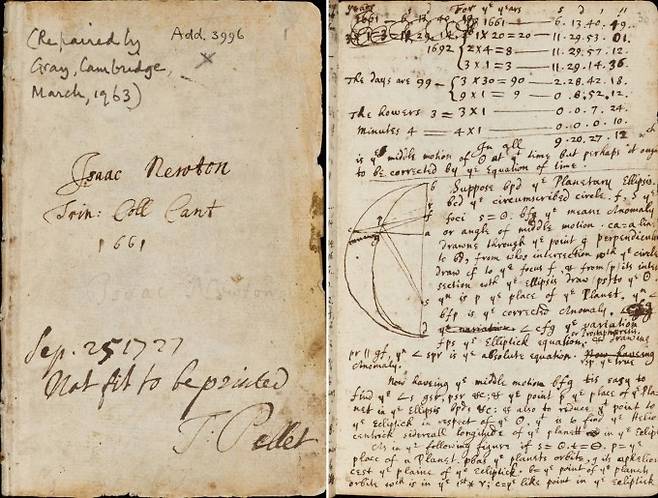 (Repaired by
Gray, Cambridge,
March, 1963)
Add. 3996
Isaac Newton
Trin: Coll Cant
1661
Isaac Newton
Sep. 25 1727
Not fit to be printed
T. Pellet
years
For yᵉ years
s d ' "
1661 — 6. 13. 40. 49.
1 X 20 = 20 — 11. 29. 53. 01.
1692 2 X 4 = 8 — 11. 29. 57. 12.
3 X 1 = 3 — 11. 29. 14. 36.
The days are 99 — 3 X 30 = 90 — 2. 28. 42. 18.
9 X 1 = 9 — 0. 8. 52. 12.
The howers 3 = 3 X 1 — 0. 0. 7. 24.
Minutes 4 = 4 X 1 — 0. 0. 0. 10.
In all 9. 20. 27. 12
is yᵉ middle motion of ☉ at yᵗ time but perhaps it ought
to be corrected by yᵉ Equation of time.
Suppose bpd yᵉ Planetary Ellipsis.
bcd yᵉ circumscribed circle. f, s yᵉ
foci s = ☉. bfg yᵉ meane Anomaly
or angle of middle motion. ca = a line
drawne through yᵉ point g perpendicular
to bd, from whos intersection wᵗʰ yᵉ circle
draw cf to yᵉ focus f, & from p its inter
section wᵗʰ yᵉ ellipsis draw ps to yᵉ ☉.
yⁿ is p yᵉ place of yᵉ Planet, yᵉ <
bfp is yᵉ corrected Anomaly.
yᵉ variation < cfg yᵉ variation
fps yᵉ Elliptick equation, or Prostaphæresis. & drawing
pr || gf, yᵉ < spr is yᵉ absolute equation. Now haveing
rsp yᵉ true
Anomaly.
Now haveing yᵉ middle motion bfg tis easy to
find yᵉ <s gsr, psr &c: & yᵉ point p yᵉ place of yᵉ Pla
net in yᵉ Ellipsis bpd &c: & also to reduce yᵗ point to
yᵉ Ecliptick in respect of yᵉ ☉. yᵗ is to find yᵉ Helio
centrick siderall longitude of yᵉ planett in yᵉ Ecliptick
As in yᵉ following figure if s = ☉. p = yᵉ
place of a Planet. pbas yᵉ planets orbite, yˢ its aphelion
cest yᵉ plaine of yᵉ Ecliptick. b = yᵉ point of yᵉ planets
orbite wᶜʰ is in yᵉ 1ˢᵗ * ♈. c = yᵉ like point in yᵉ Ecliptick